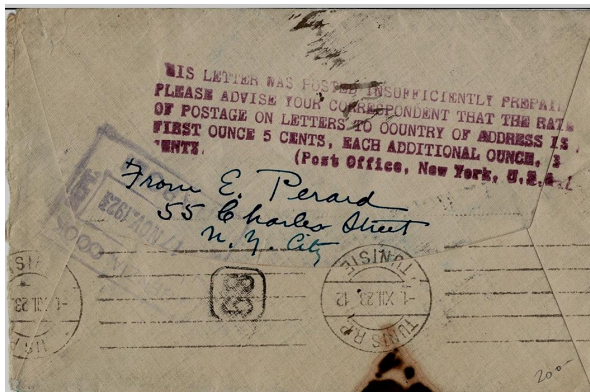 THIS LETTER WAS POSTED INSUFFICIENTLY PREPAID
PLEASE ADVISE YOUR CORRESPONDENT THAT THE RATE
OF POSTAGE ON LETTERS TO COUNTRY OF ADDRESS IS
FIRST OUNCE 5 CENTS, EACH ADDITIONAL OUNCE, 3
CENTS.
(Post Office, New York, U.S.A.)
From E. Perard
55 Charles Street
N. Y. City
NOV. 1923
TUNISIE
-1.XII.23 12
TUNIS R.P.
-1.XII.23
200-